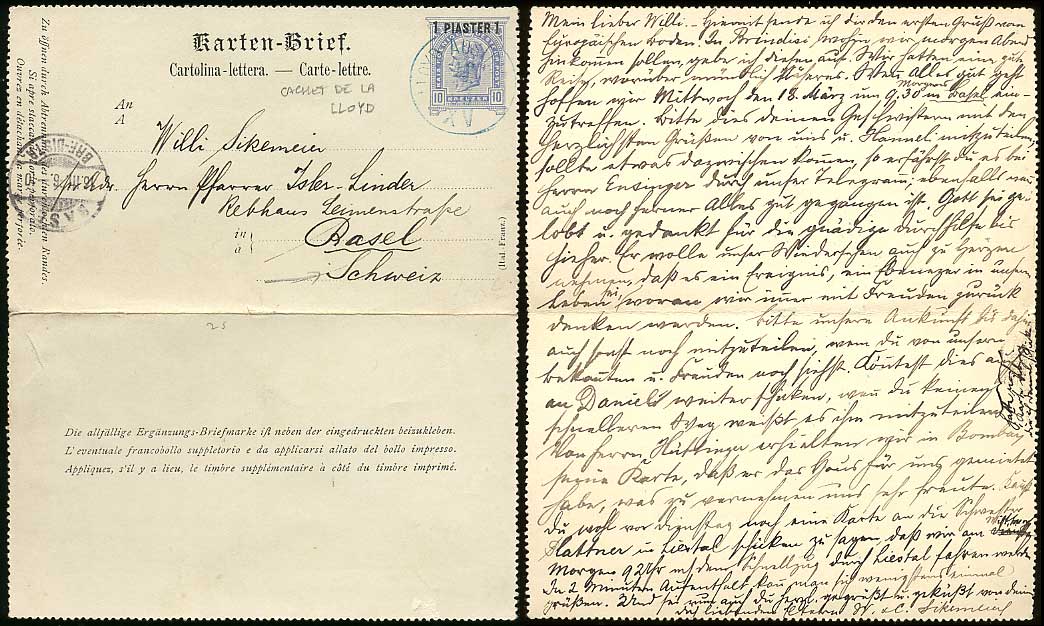 Karten-Brief.
Cartolina-lettera. — Carte-lettre.
1 PIASTER 1
10 KREUZER 10
CACHET DE LA
LLOYD
An
A
Willi Sikemeier
Adr. Herrn Pfarrer Isler-Linder
Rebhaus Leimenstraße
in
à
Basel
Schweiz
(Ital. Franz.)
Zu öffnen durch Abtrennung des durchlochten Randes.
Si apre staccando l'orlo perforato.
Ouvrez en détachant la marge perforée.
25
Die allfällige Ergänzungs-Briefmarke ist neben der eingedruckten beizukleben.
L'eventuale francobollo suppletorio e da applicarsi allato del bollo impresso.
Appliquez, s'il y a lieu, le timbre supplémentaire à côté du timbre imprimé.
Mein lieber Willi. - Hiermit sende ich dir den ersten Gruß von
Europäischen Boden. In Brindisi, wohin wir morgen Abend
hinkommen sollen, gebe ich diesen auf. Wir hatten eine gute
Reise, worüber mündlich Näheres. Wenn Alles gut geht
hoffen wir Mittwoch den 18. März um 9.30 Morgens in Basel ein-
zutreffen. Bitte dies deinen Geschwistern mit den
herzlichsten Grüßen von uns u. Hannel mitzuteilen,
sollte etwas dazwischen kommen, so erfährst du es bei
Herrn Ensinger durch unser Telegramm; ebenfalls wenn
auch noch ferner Alles gut gegangen ist. Gott sei ge-
lobt u. gedankt für die gnädige Durchhilfe bis
hieher. Er wolle unser Wiedersehen auch zu Herzen
nehmen, daß es ein Ereignis, ein Ebenezer in unserm
Leben sei, woran wir immer mit Freuden zurück
denken werden. Bitte unsere Ankunft bis dahin
auch sonst noch mitzuteilen, wenn du von unsern
Bekannten u. Freunden noch siehst. Könntest dies auch
an Daniel weiter schicken, wenn du keinen
schnelleren Weg weißt es ihm mitzuteilen.
Von Herrn Hüttinger erhielten wir in Bombay
seine Karte, daß er das Haus für uns gemietet
habe, was zu vernehmen uns sehr freute.
du wohl vor Dienstag noch eine Karte an die Schwester
Plattner in Liestal schicken zu sagen, daß wir am Mittwoch
Morgen 9 Uhr mit dem Schnellzug durch Liestal fahren werden
In 2 Minuten Aufenthalt kann man sich wenigstens einmal
grüßen. Und sei nun auch du herzl. gegrüßt u. geküßt von deinen
dich liebenden Eltern W. u. C. Sikemeier